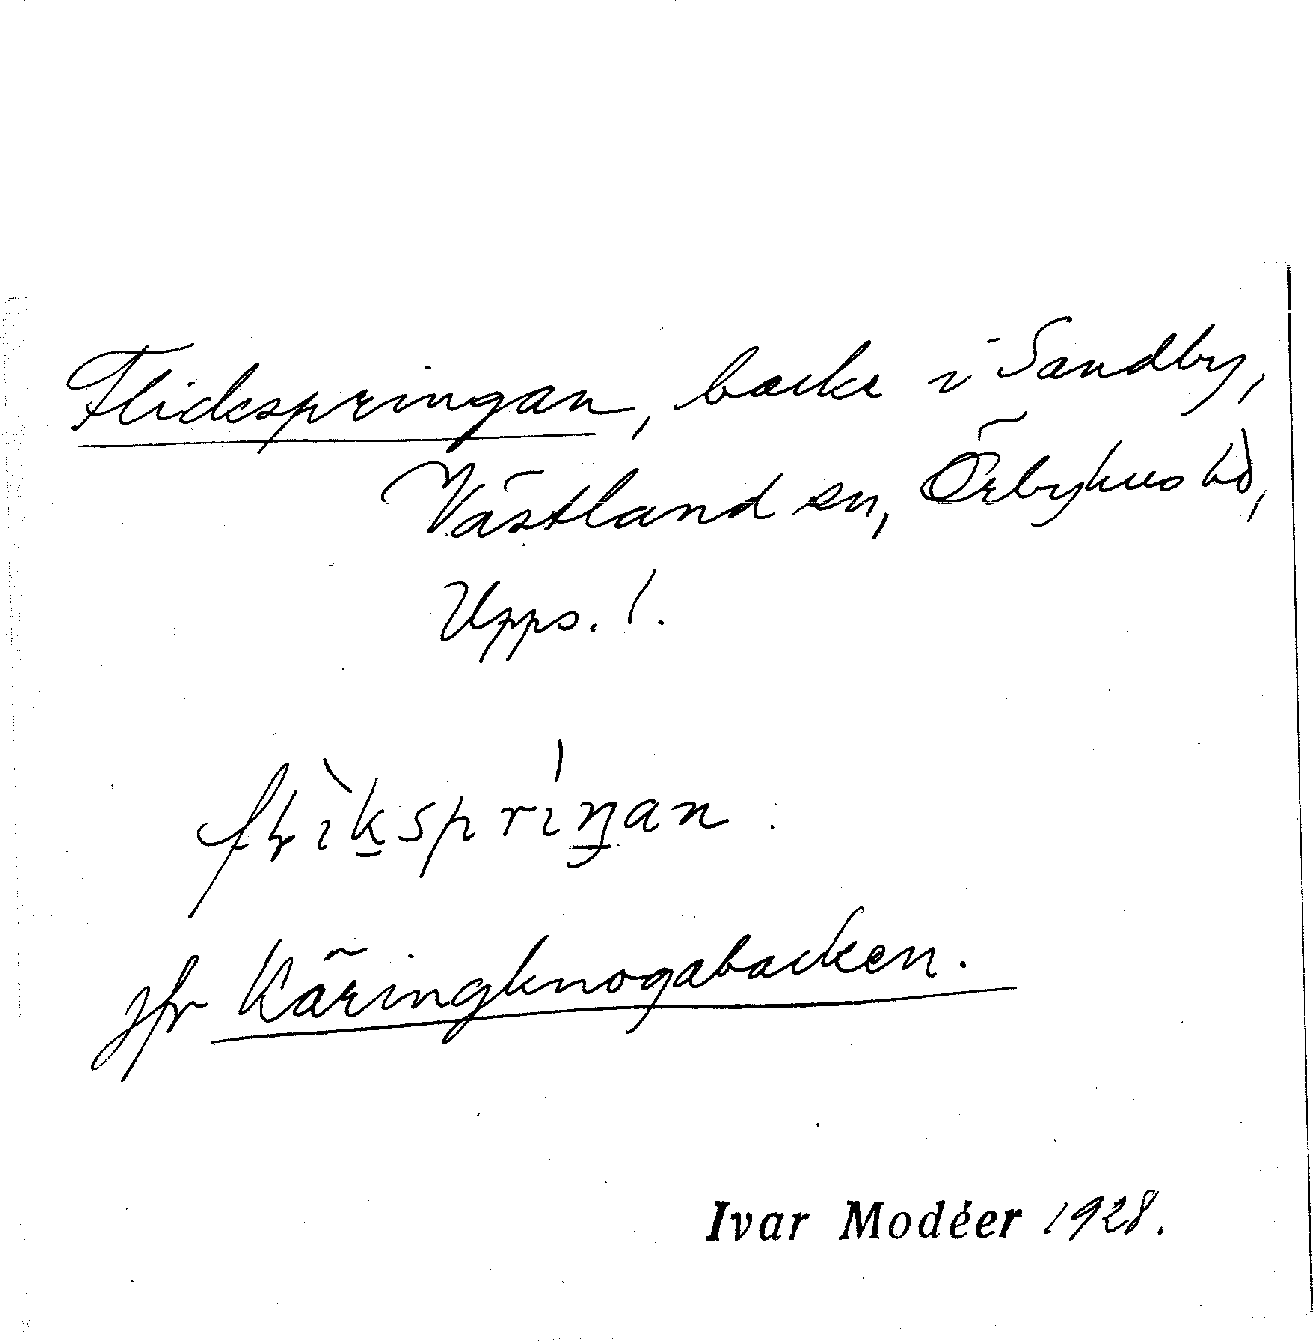 Flickspringan, backe i Sandby,
Västland sn, Örbyhus hd,
Upps. l.
fɽìk̲spríŋan
jfr Käringknogabacken.
Ivar Modéer 1928.